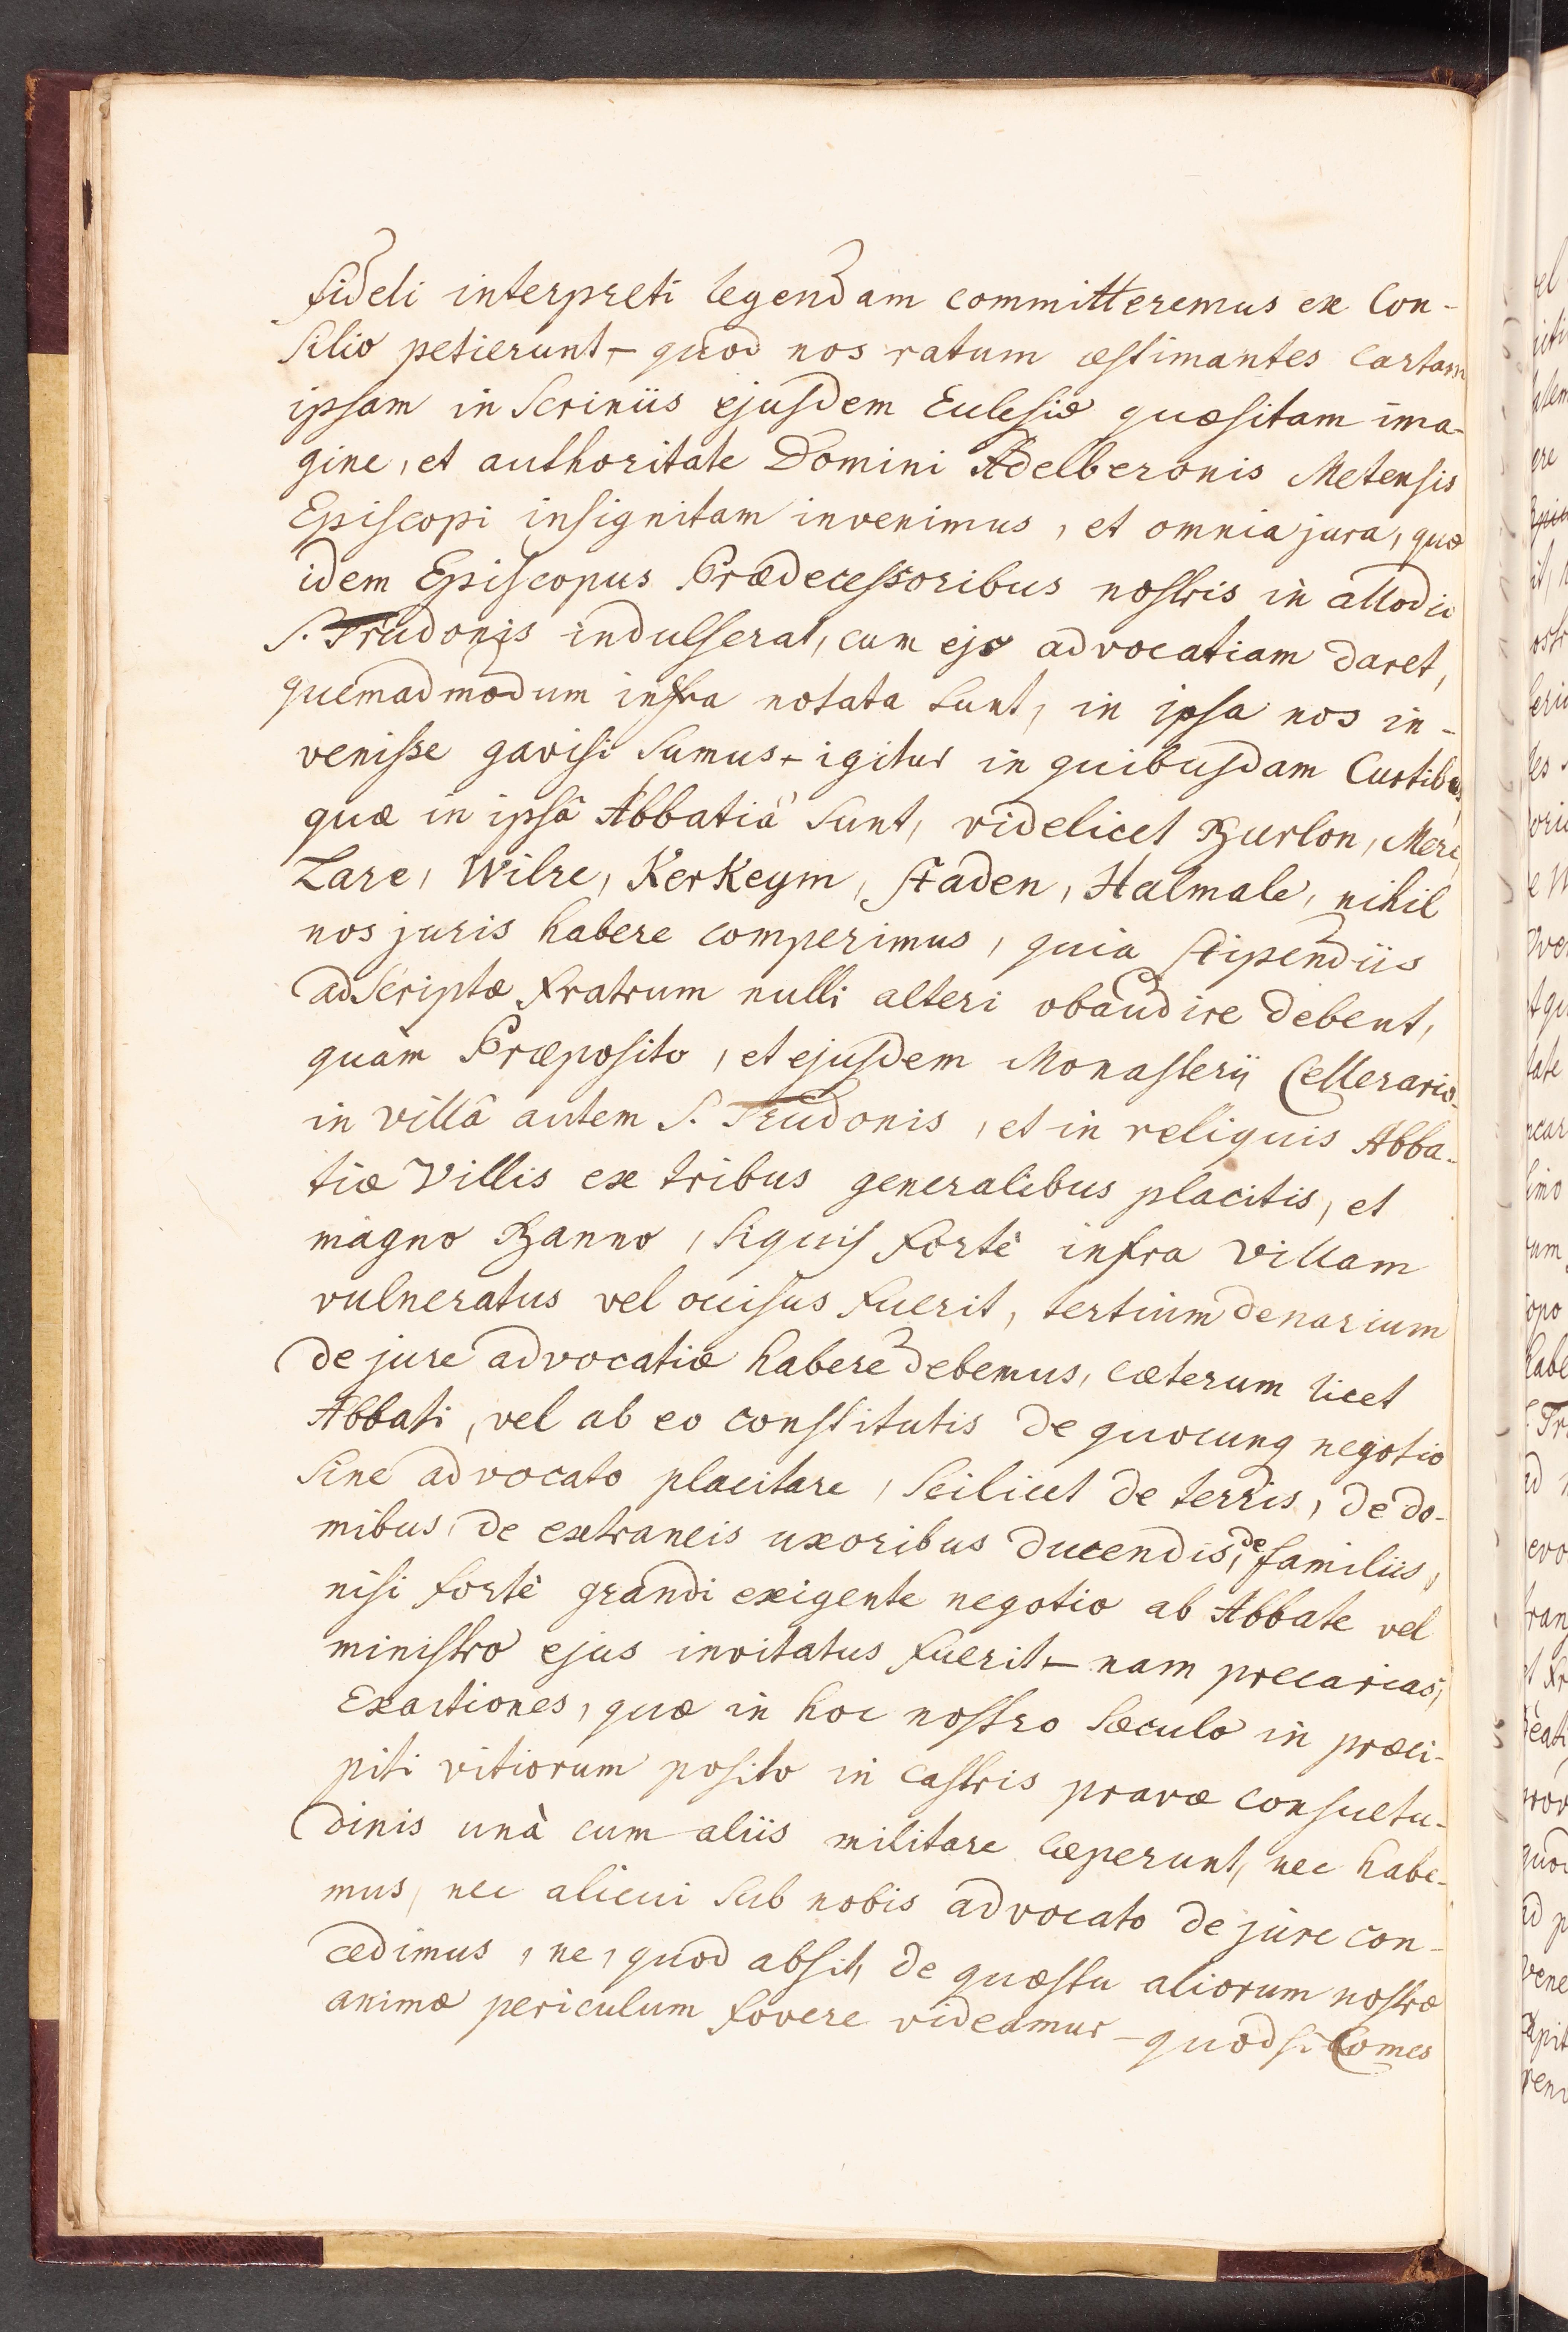 fideli interpreti legendam committeremus ex Con-
silio petierunt – quod nos ratum æstimantes Cartam
ipsam in Scriniis ejusdem Ecclesiæ quæsitam ima-
gine, et authoritate Domini Adelberonis Metensis
Episcopi insignitam invenimus, et omnia jura, quæ
idem Episcopus Prædecessoribus nostris in allodio
S. Trudonis indulserat, cum ejs advocatiam daret,
quemadmodum infra notata sunt, in ipsa nos in-
venisse gavisi sumus – igitur in quibusdam Curtibus,
quæ in ipsâ Abbatiâ sunt, videlicet Burlon, Mere,
Lare, Wilre, Kerkeym, Staden, Halmale, nihil
nos juris habere comperimus, quia stipendiis
adscriptæ fratrum nulli alteri obaudire debent,
quàm Præposito, et ejusdem Monasterij Cellerario-
in villâ autem S. Trudonis, et in reliquis Abba-
tiæ Villis ex tribus generalibus placitis, et
magno Banno, siquis fortè infra villam
vulneratus vel occisus fuerit, tertium denarium
de jure advocatiæ habere debemus, cæterum licet
Abbati, vel ab eo constitutis de quocunq negotio
sine advocato placitare, scilicet de terris, de do-
mibus, de extraneis uxoribus ducendis, de familiis,
nisi fortè grandi exigente negotio ab Abbate vel
ministro ejus invitatus fuerit – nam precarias,
Exactiones, quæ in hoc nostro sæculo in præci-
piti vitiorum posito in castris pravæ consuetu-
dinis unà cum aliis militare cæperunt, nec habe-
mus, nec alicui sub nobis advocato de jure con-
cedimus, ne, quod absit, de quæstu aliorum nostræ
animæ periculum fovere videamur – quod si Comes